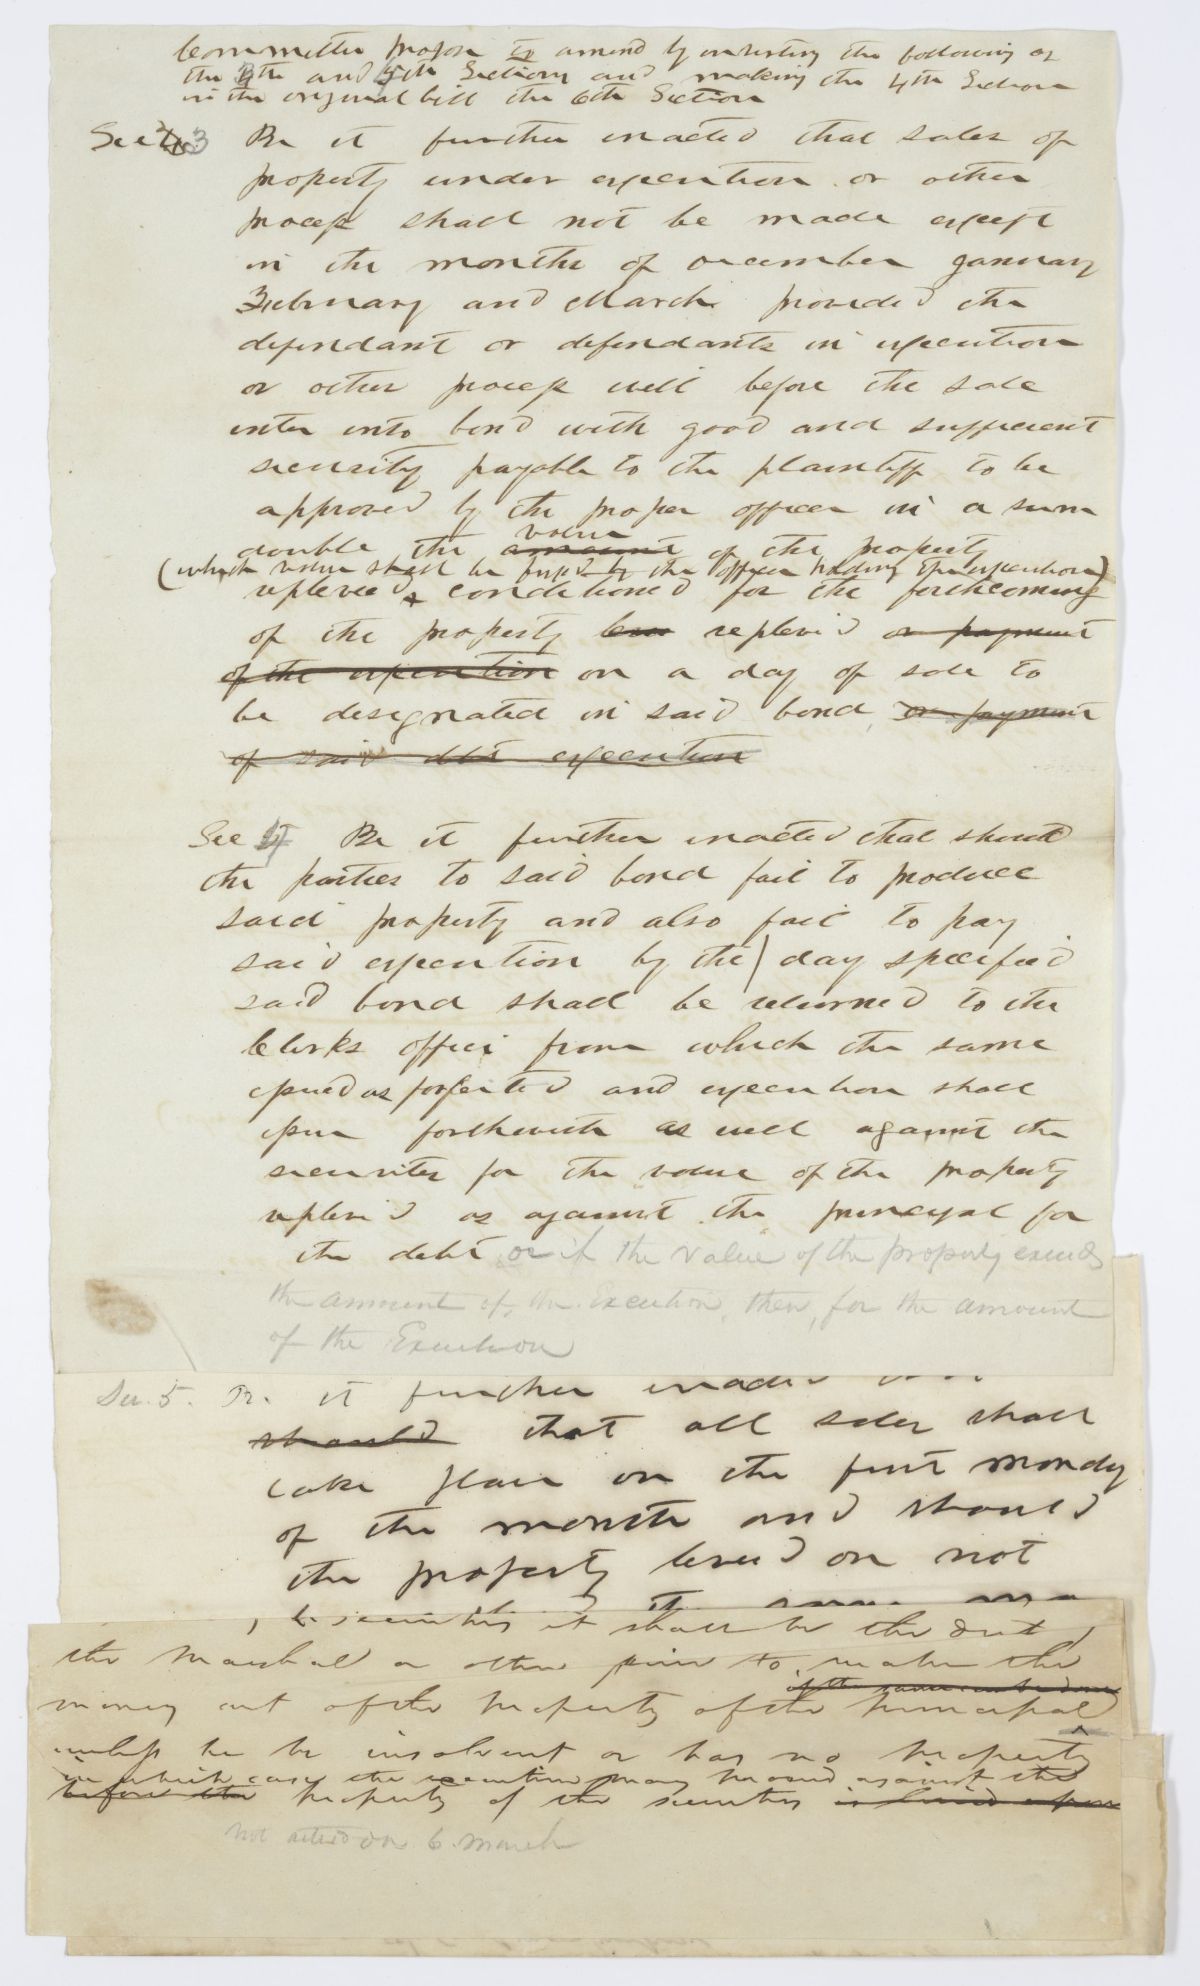 Committee propose to amend by inserting the following as
the 4th and 5th Sections and making the 4th Section
in the original bill the 6th Section
Sec 3 Be it further enacted that sales of
property under execution or other
process shall not be made except
in the months of December January
February and March provided the
defendant or defendants in execution
or other process will before the sale
enter into bond with good and sufficient
security payable to the plaintiff to be
approved by the proper officer in a sum
value
double the amount of the property
(which value shall be fixed by the officer holding the execution)
replevied & conditioned for the forthcoming
of the property replevied or payment
of the execution on a day of sale to
be designated in said bond or payment
of said debt execution
Sec 4 Be it further enacted that should
the parties to said bond fail to produce
said property and also fail to pay
said execution by the day specified
said bond shall be returned to the
Clerks office from which the same
issued as forfeited and execution shall
issue forthwith as well against the
securites for the value of the property
replevied as against the principal for
the debt or if the value of the property exceeds
the amount of the Execution, then, for the amount
of the Execution
Sec. 5. Be it further enacted
should that all sales shall
take place on the first monday
of the month and should
the property levied on not
securities it shall be the duty
the Marshal or other to make the
of the same
money out of the property of the principal
unless he be insolvent or has no property
in which case the execution may proceed against the
before the property of the securities is levied upon
not acted on 6. March